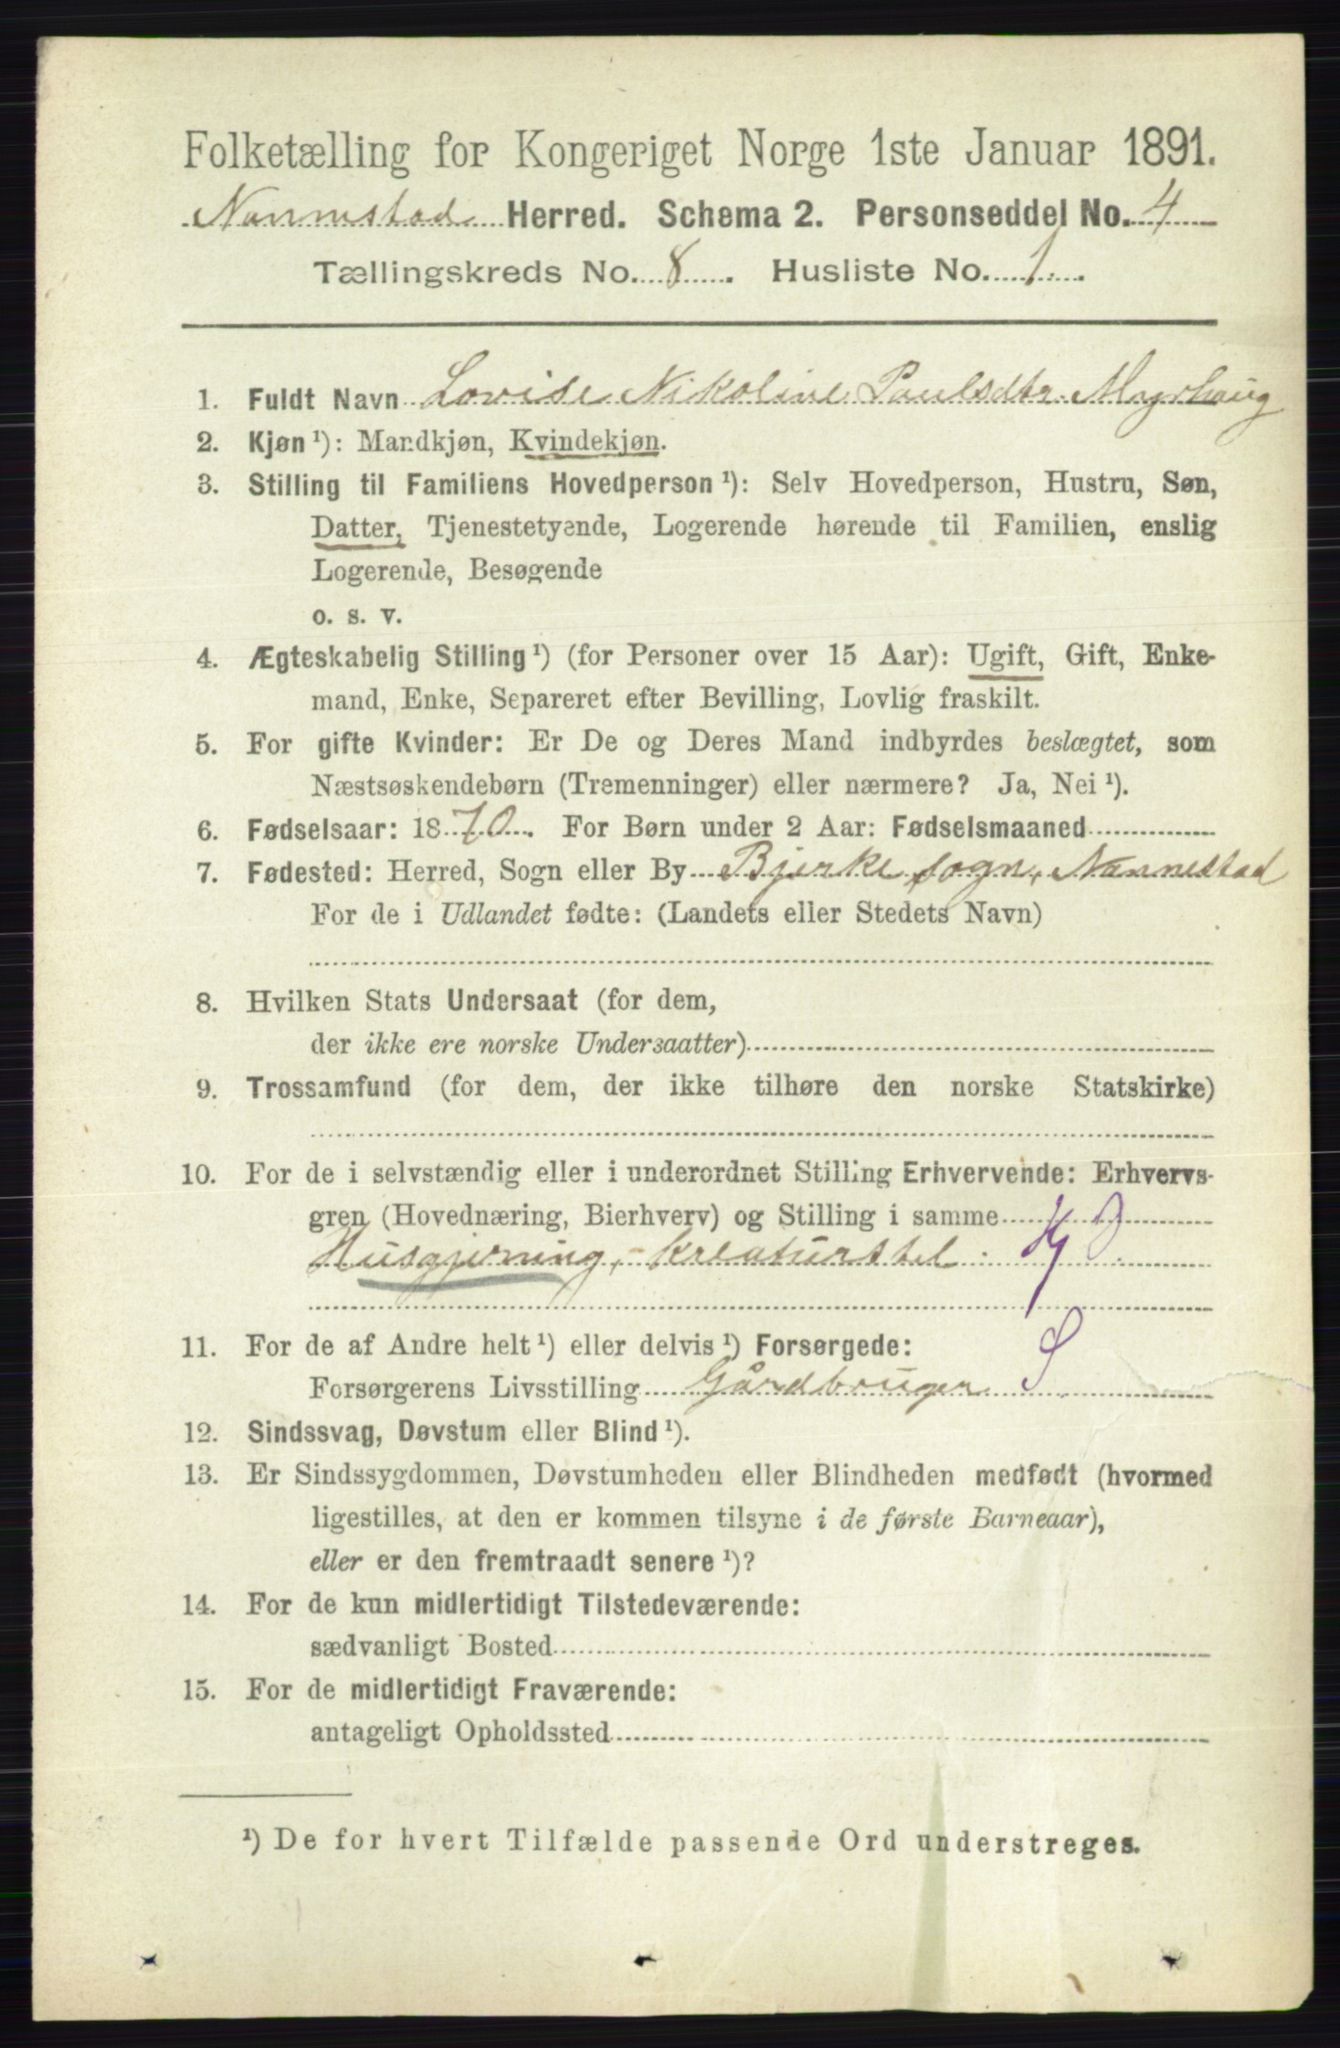 Folketælling for Kongeriget Norge 1ste Januar 1891.
Nannestad Herred. Schema 2. Personseddel No. 4
Tællingskreds No. 8. Husliste No. 1.
1. Fuldt Navn Lovise Nikoline Paulsdtr. Myrhaug
2. Kjøn ¹): Mandkjøn, Kvindekjøn.
3. Stilling til Familiens Hovedperson ¹): Selv Hovedperson, Hustru, Søn,
Datter, Tjenestetyende, Logerende hørende til Familien, enslig
Logerende, Besøgende
o. s. v.
4. Ægteskabelig Stilling ¹) (for Personer over 15 Aar): Ugift, Gift, Enke-
mand, Enke, Separeret efter Bevilling, Lovlig fraskilt.
5. For gifte Kvinder: Er De og Deres Mand indbyrdes beslægtet, som
Næstsøskendebørn (Tremenninger) eller nærmere? Ja, Nei ¹).
6. Fødselsaar: 1870. For Børn under 2 Aar: Fødselsmaaned
7. Fødested: Herred, Sogn eller By Bjerke sogn, Nannestad
For de i Udlandet fødte: (Landets eller Stedets Navn)
8. Hvilken Stats Undersaat (for dem,
der ikke ere norske Undersaatter)
9. Trossamfund (for dem, der ikke tilhøre den norske Statskirke)
10. For de i selvstændig eller i underordnet Stilling Erhvervende: Erhvervs-
gren (Hovednæring, Bierhverv) og Stilling i samme
Husgjerning, kreaturstel.
11. For de af Andre helt ¹) eller delvis ¹) Forsørgede: S
Forsørgerens Livsstilling Gårdbruger
12. Sindssvag, Døvstum eller Blind ¹).
13. Er Sindssygdommen, Døvstumheden eller Blindheden medfødt (hvormed
ligestilles, at den er kommen tilsyne i de første Barneaar),
eller er den fremtraadt senere ¹)?
14. For de kun midlertidigt Tilstedeværende:
sædvanligt Bosted
15. For de midlertidigt Fraværende:
antageligt Opholdssted
¹) De for hvert Tilfælde passende Ord understreges.